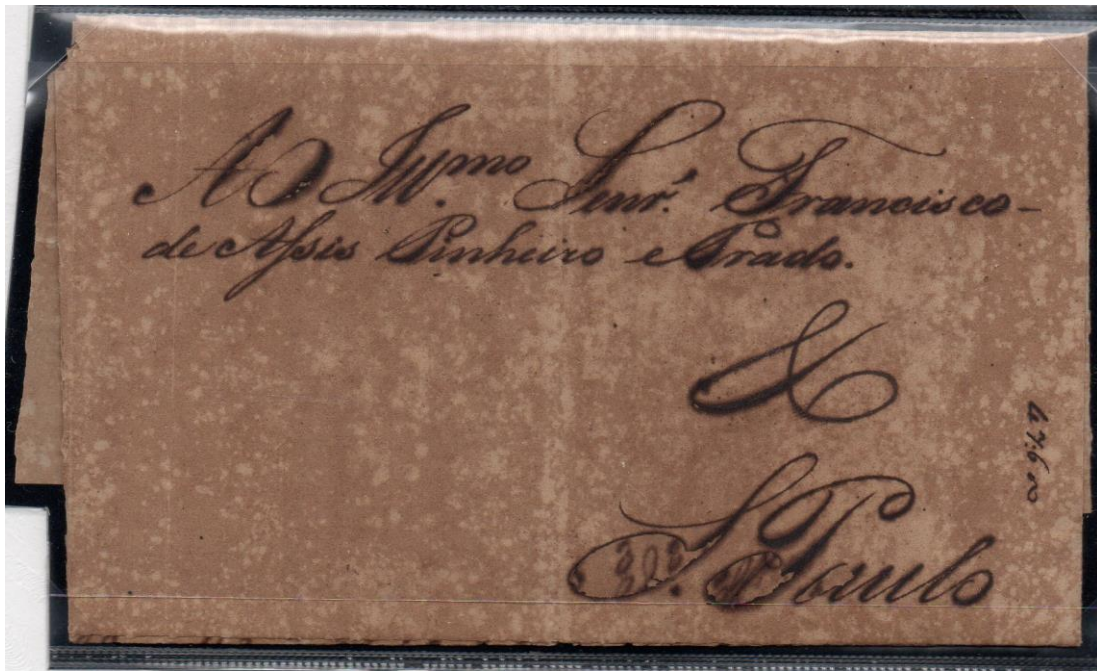 Ao Illmo Senr. Francisco-
de Assis Pinheiro e Prado.
&
S. Paulo
47600